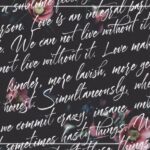 Love is an integral part
We can not live without it
not live without it. Love make
kinder, more lavish, more ge
honest. Simultaneously, whe
we commit crazy, insane,
sometimes hasty things.